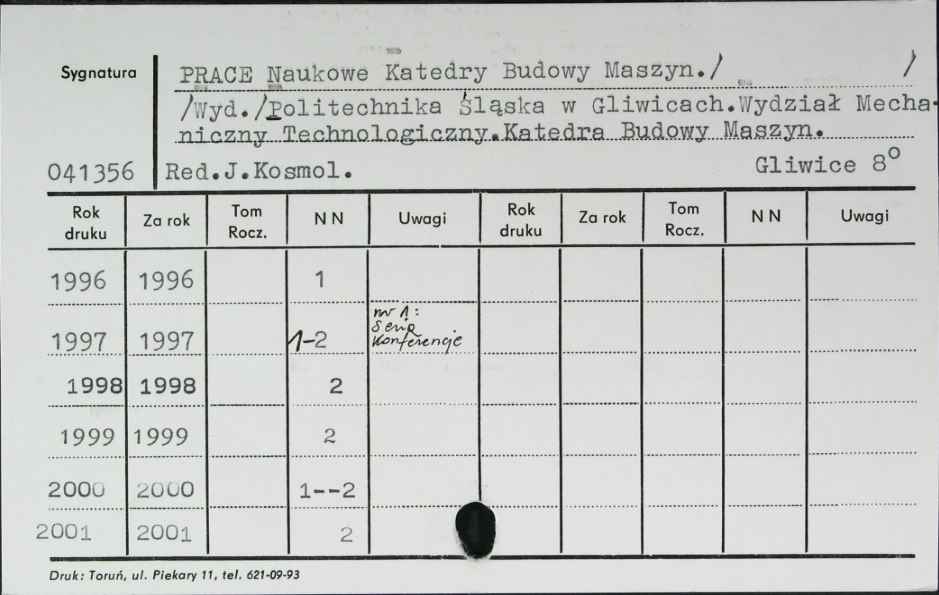 Sygnatura
PRACE Naukowe Katedry Budowy Maszyn./ /
/Wyd./Politechnika Śląska w Gliwicach.Wydział Mecha-
niczny Technologiczny.Katedra Budowy Maszyn.
041356 Red.J.Kosmol. Gliwice 8°
Rok druku Za rok Tom Rocz. N N Uwagi Rok druku Za rok Tom Rocz. N N Uwagi
1996 1996 1
1997 1997 1-2 nr 1: Seria Konferencje
1998 1998 2
1999 1999 2
2000 2000 1--2
2001 2001 2
Druk: Toruń, ul. Piekary 11, tel. 621-09-93